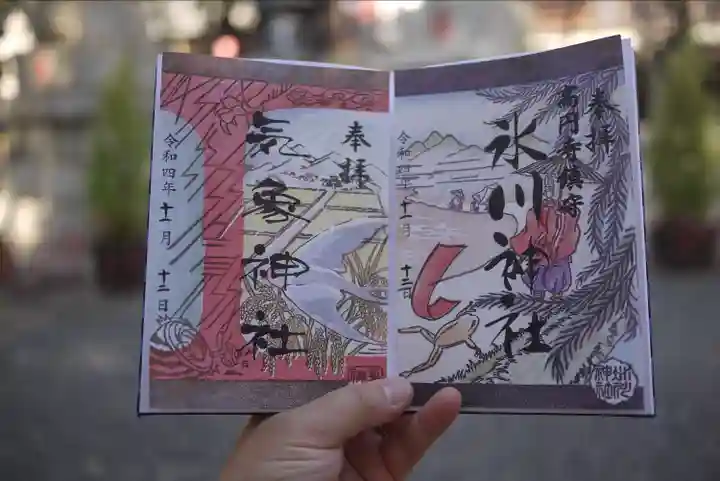 奉拝
高円寺鎮守
氷川神社
令和四年十一月
十二日
奉拝
気象神社
令和四年十一月
十二日